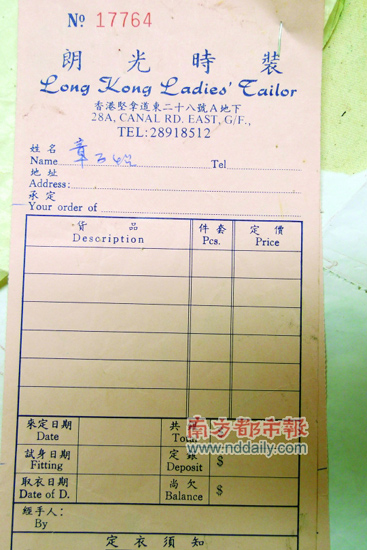 No 17764
朗光時裝
Long Kong Ladies' Tailor
香港堅拿道東二十八號A地下
28A, CANAL RD. EAST, G/F.,
TEL:28918512
姓名
Name 章子怡 Tel
地址
Address:
承定
Your order of
貨品 件套 定價
Description Pcs. Price
來定日期 共
Date Total
試身日期 定銀
Fitting Deposit $
取衣日期 尚欠
Date of D. Balance $
經手人:
By
定衣須知
南方都市報
www.nddaily.com